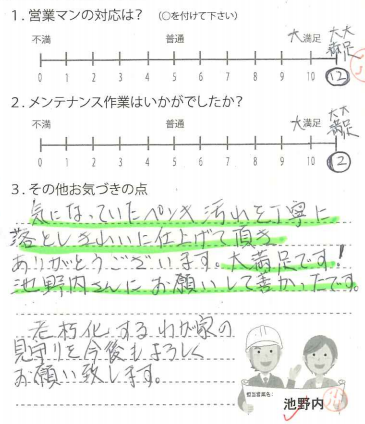 1. 営業マンの対応は? (○を付けて下さい)
不満 普通 大満足 大大満足
0 1 2 3 4 5 6 7 8 9 10 12
2. メンテナンス作業はいかがでしたか?
不満 普通 大満足 大大満足
0 1 2 3 4 5 6 7 8 9 10 12
3. その他お気づきの点
気になっていたペンキ汚れを丁寧に
落としきれいに仕上げて頂き
ありがとうございます。大満足です!
池野内さんにお願いして良かったです。
老朽化するわが家の
見守りを今後もよろしく
お願い致します。
担当営業名:
池野内